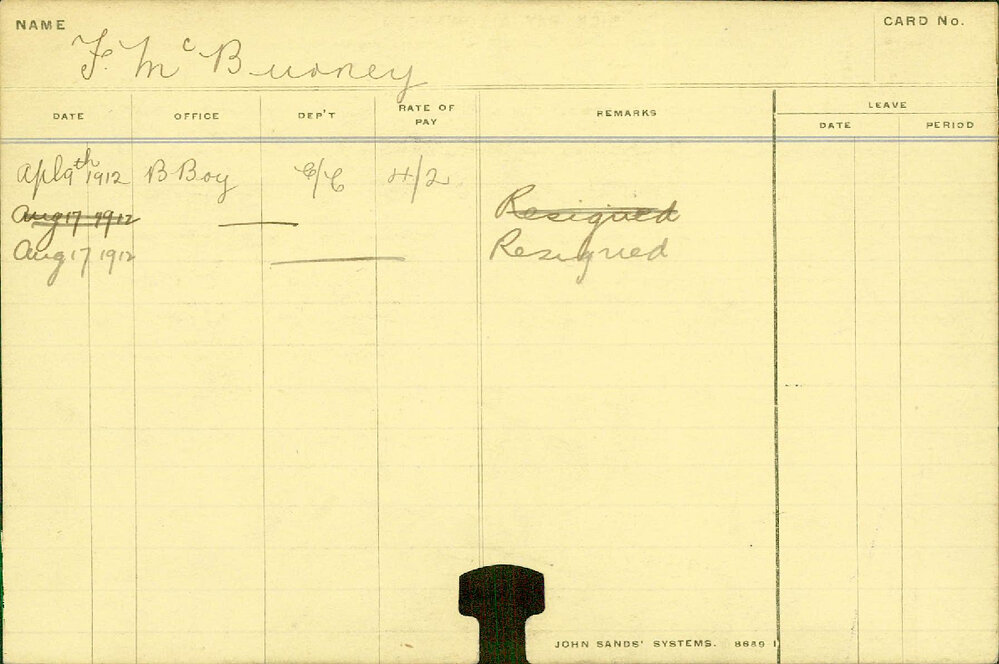 NAME
F. McBurney
CARD No.
DATE OFFICE DEP'T RATE OF PAY REMARKS LEAVE
DATE PERIOD
Apl 9th 1912 B Boy E/C 4/2
Aug 17 1912 Resigned
Aug 17 1912 Resigned
JOHN SANDS' SYSTEMS. 8689 1